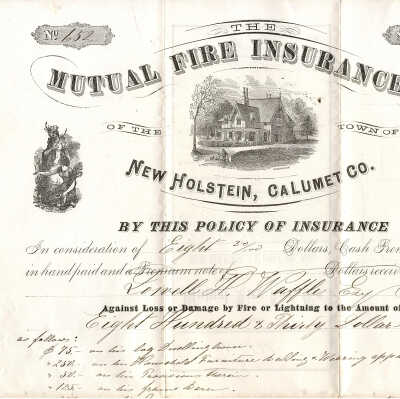 No 152
THE
MUTUAL FIRE INSURANCE
OF THE TOWN OF
NEW HOLSTEIN, CALUMET CO.
BY THIS POLICY OF INSURANCE
In consideration of Eight Dollars, Cash Prem
in hand paid and a Premium note of Dollars receiv
Lowell H.
Against Loss or Damage by Fire or Lightning to the Amount of
Eight Hundred & Thirty Dollar
as follows:
$ 75- on his Log Dwelling house
" 250- on his Household Furniture Wearing appa
" 50- on his Provisions therein
on his grain barn